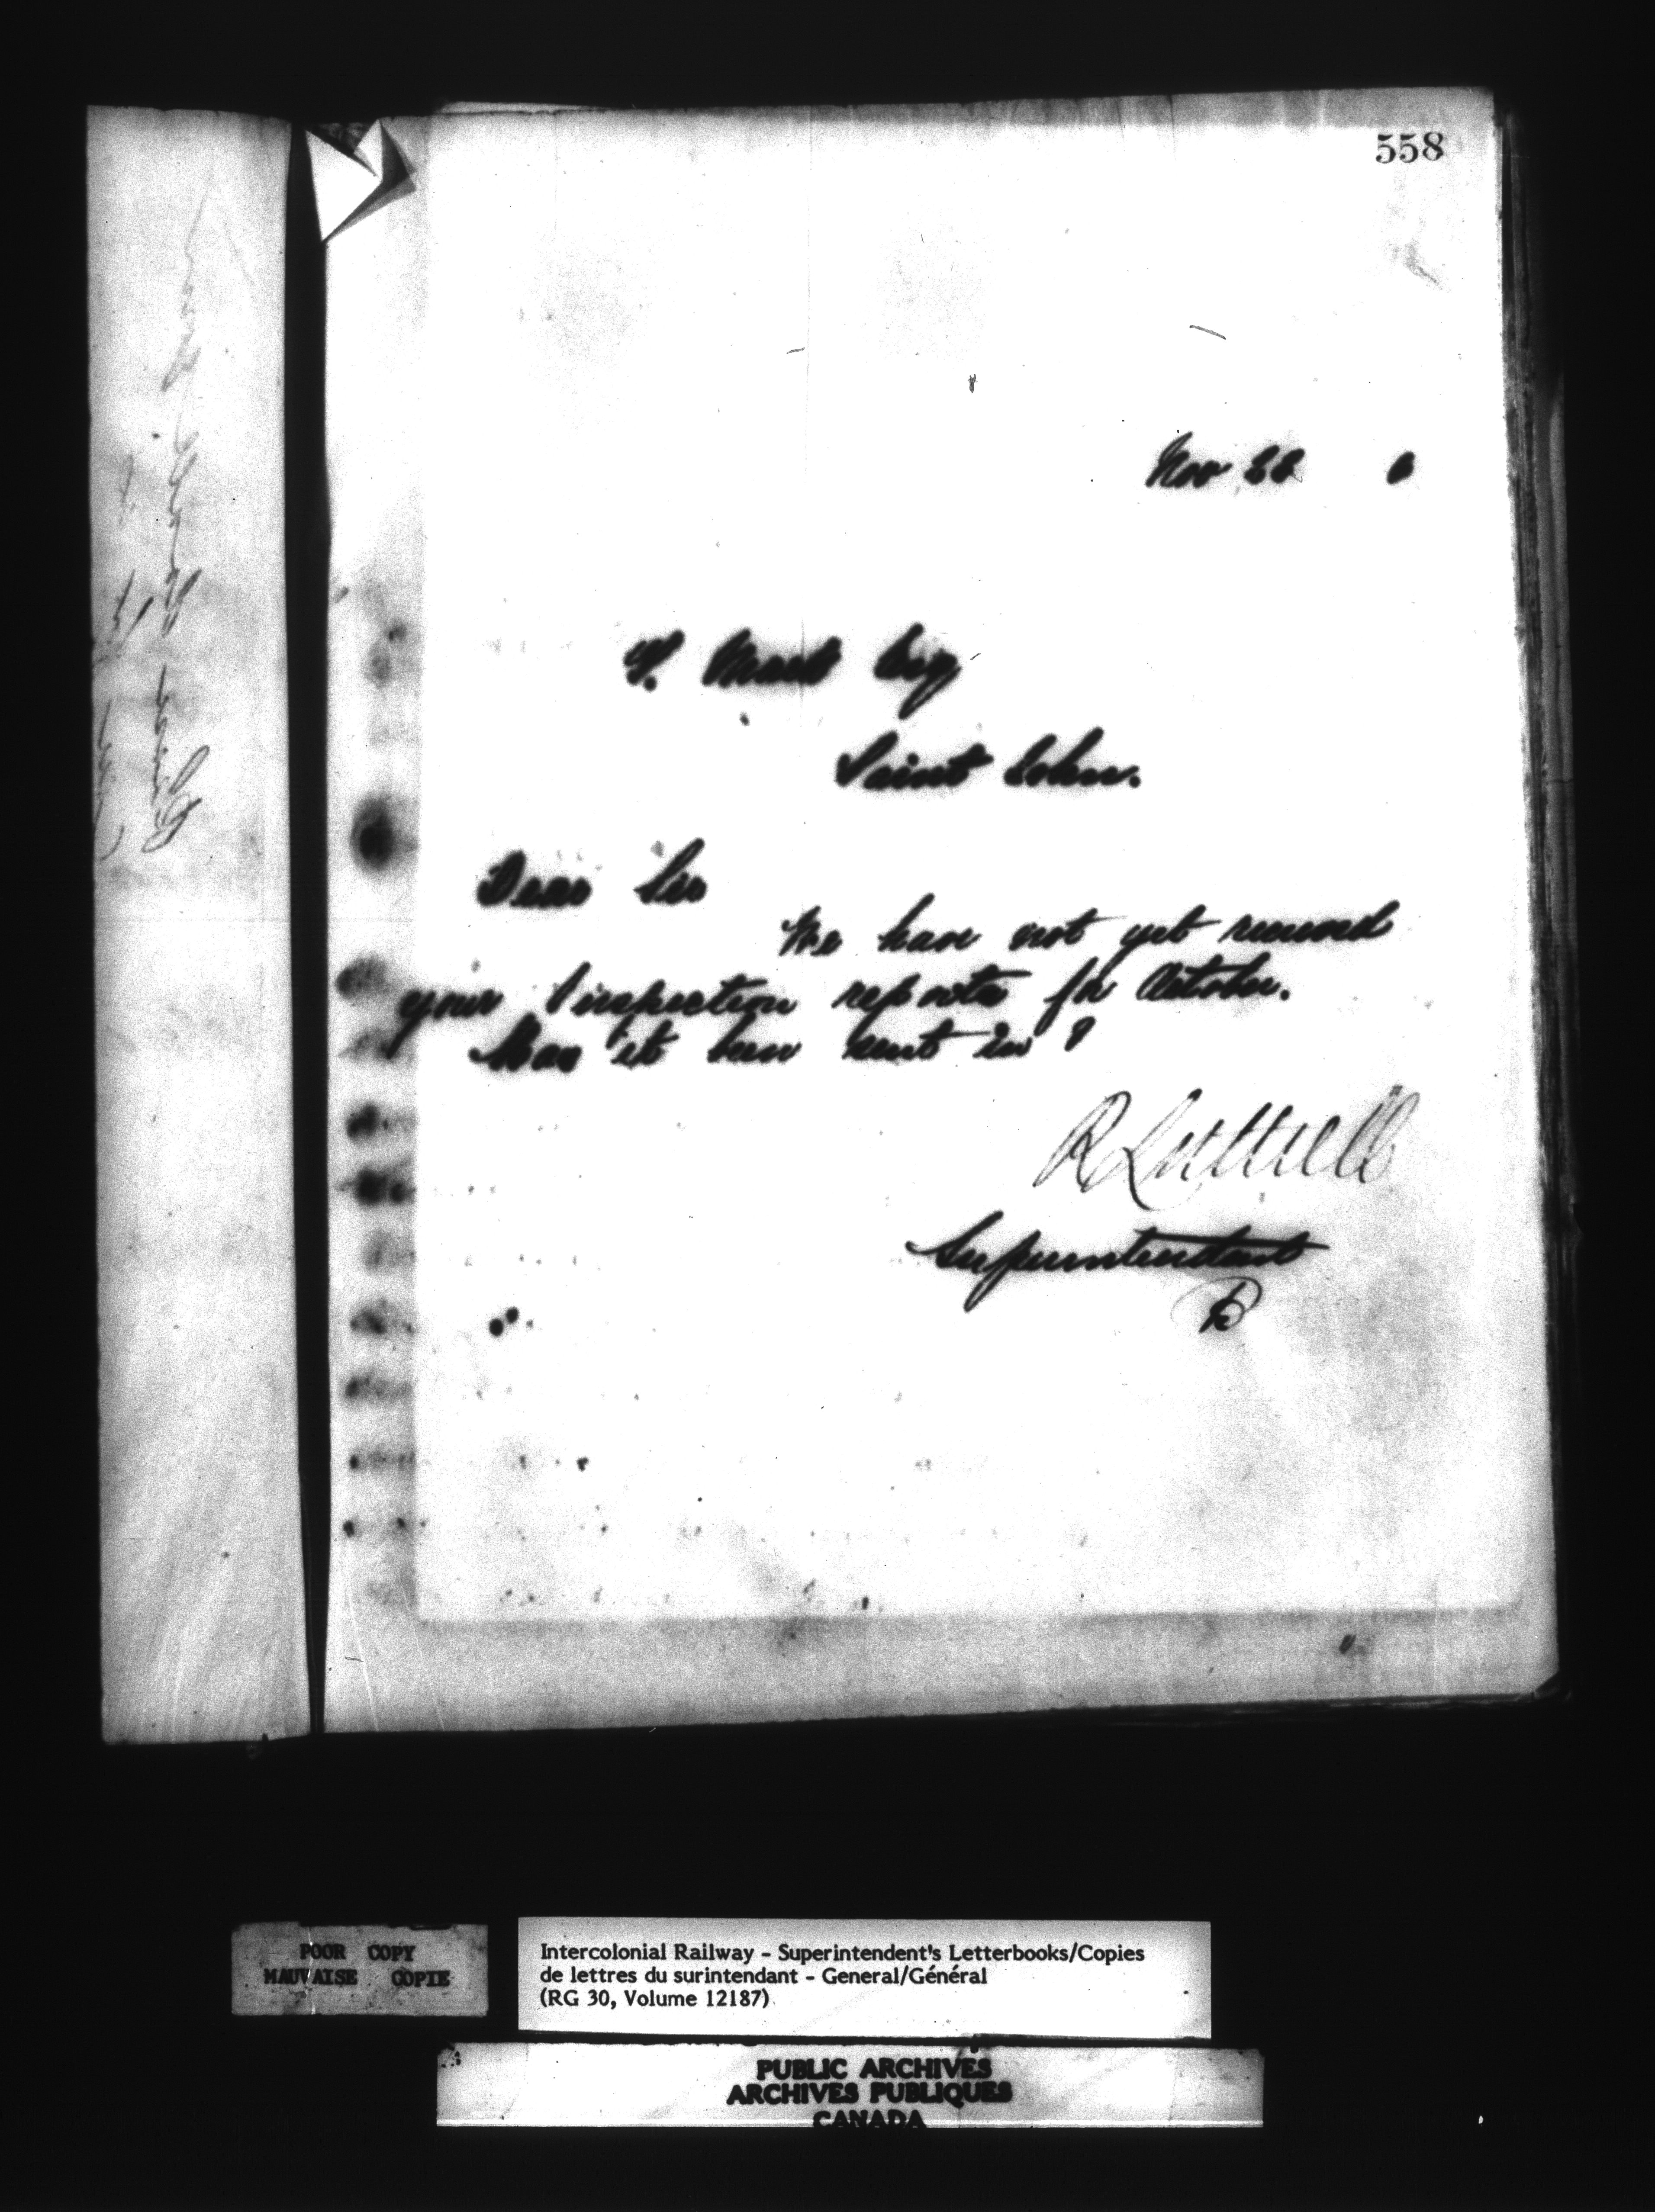 558
Nov 22 6
Esq
Saint John.
Dear Sir
We have not yet received
your Inspection reports for October.
Has it been sent in?
R Luttrell
Superintendent
B
POOR COPY
MAUVAISE COPIE
Intercolonial Railway - Superintendent's Letterbooks/Copies
de lettres du surintendant - General/Général
(RG 30, Volume 12187)
PUBLIC ARCHIVES
ARCHIVES PUBLIQUES
CANADA